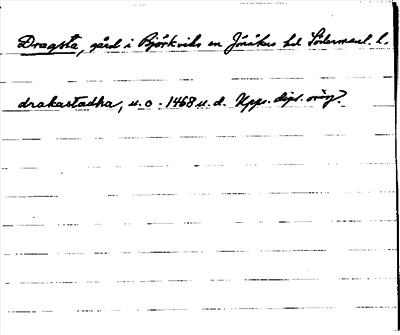 Dragsta, gård i Björkviks sn Jönåkers hd Södermanl. l.
drakastadha, u.o. 1468 u.d. Upps. dipl. orig.